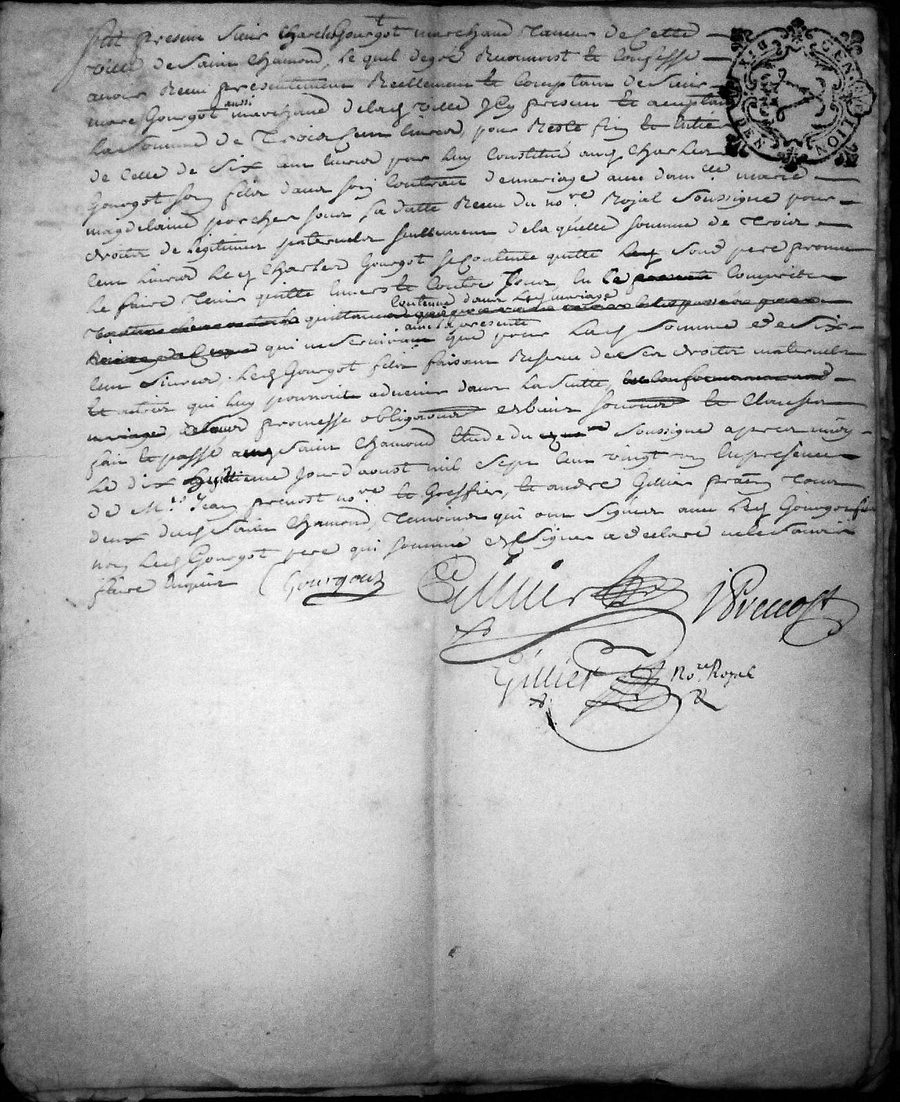 fut present Sieur Charles Gourgot marchand Taneur de Cette
ville de Saint Chamond, lequel de gré Reconnoist et Confesse
avoir Receu presentement Reellement et Comptant de Sieur
marc Gourgot aussi marchand delad ville Icy present et acceptant
La Somme de Trois Cent livres, pour Reste fin et Entier
de Celle de Six Cent livres par luy Constitué aud Charles
Gourgot son filz dans son Contrat de mariage avec dam.lle marie
magdelaine porcher sous sa datte Receu du no.re Royal Soussigné pour
droits de legitime paternelz seullement de laquelle somme de Trois
Cent livres led Charles Gourgot se Contente quitte led Sieur pere promet
le faire Tenir quitte Envers et Contre Tous, en Ce Comprise
quittance Contenue dans led mariage
qui ne serviront avec la presente que pour lad somme de Six
Cent livres, led Gourgot filz faisant Reserve de ses droits maternelz
et autres qui luy pourroient advenir dans la Suitte,
promesse obligations et clauses
fait et passé aud Saint Chamond Etude du Soussigné apres midy
Le dix huitieme jour d'aoust mil Sept Cent vingt En presence
de M.re Jean prevost no.re et Greffier, et andre Gillier Tous
deux dud Saint Chamond, Temoins qui ont Signés avec led Gourgot fils
non led Gourgot pere qui sommé de Signer a declaré ne le Scavoir
faire Enquis Gourgout Gillier J Prevost
Gillier No.re Royal
GEN
LION
DEN
DIX